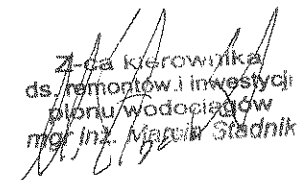 Z-ca kierownika
ds. remontów i inwestycji
pionu wodociągów
mgr inż. Marcin Stadnik